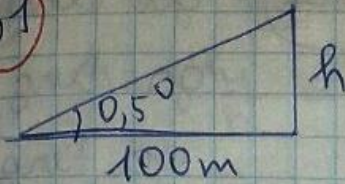 0,5°
h
100m